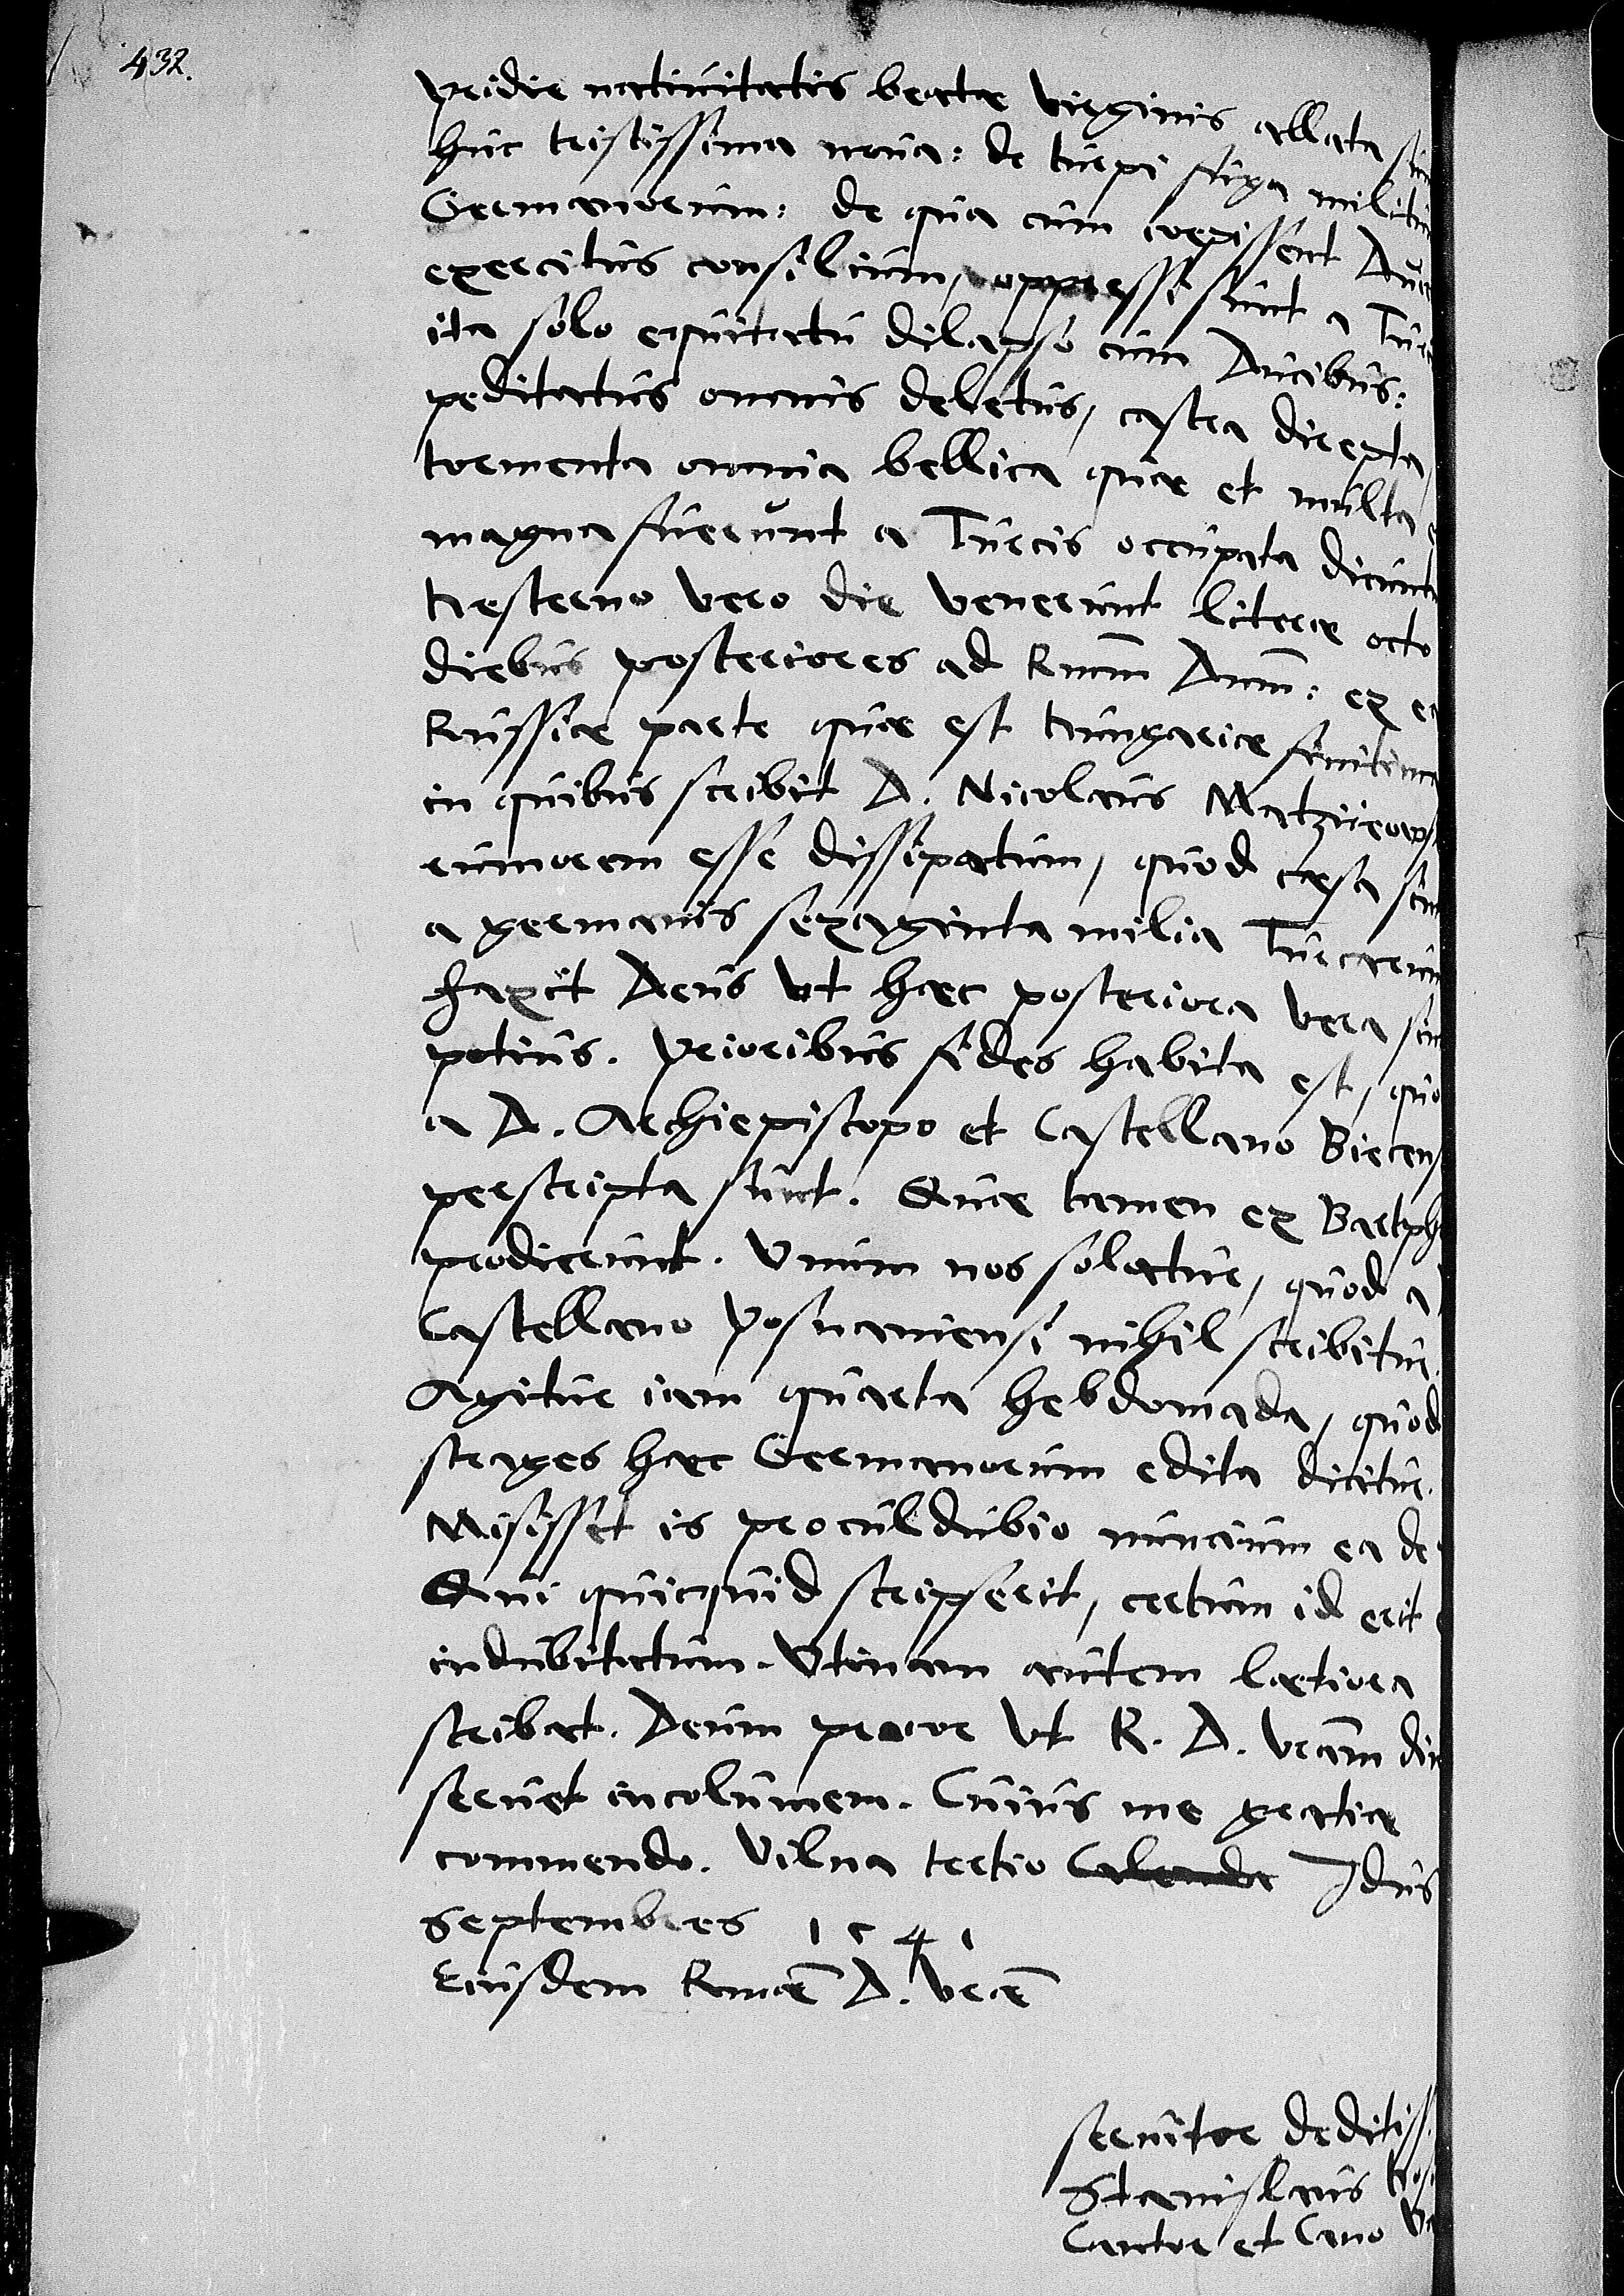 432.
pridie natiuitatis beatae virginis allata sun
huc tristissima noua: de turpi fuga militum
Germanorum: de qua cum coepissent Duces
exercitus consilium, oppressi sunt a Turc
ita solo equitatu dilapso cum Ducibus:
peditatus omnis deletus, castra direpta,
tormenta omnia bellica quae et multa e
magna fuerunt a Turcis occupata dicunt
Hesterno vero die venerunt literae octo
diebus posteriores ad Rmm Dnm: ex ea
Russiae parte quae est Hungariae finitima
in quibus scribit D. Nicolaus
rumorem esse dissipatum, quod caesa sint
a germanis sexaginta milia Turcarum
Faxit Deus vt haec posteriora vera sint
potius. Prioribus fides habita est, quod
a D. Archiepiscopo et Castellano Biecens
perscripta sunt. Quae tamen ex Bartph
prodierunt. Vnum nos solatur, quod a
Castellano Posnaniensi nihil scribitur.
Agitur iam quarta hebdomada, quod
strages haec Germanorum edita dicitur.
Misisset is proculdubio nuncium ea de
Qui quicquid scripserit, certum id erit
indubitatum. Vtinam autem laetiora
scribat. Deum precor vt R. D. vram diu
seruet incolumem. Cuius me gratiae
commendo. Vilna tertio Calenda Idus
Septembres 1541
Eiusdem Rmae D. vrae
seruitor deditiss.
Stanislaus Hosi
Cantor et Cano